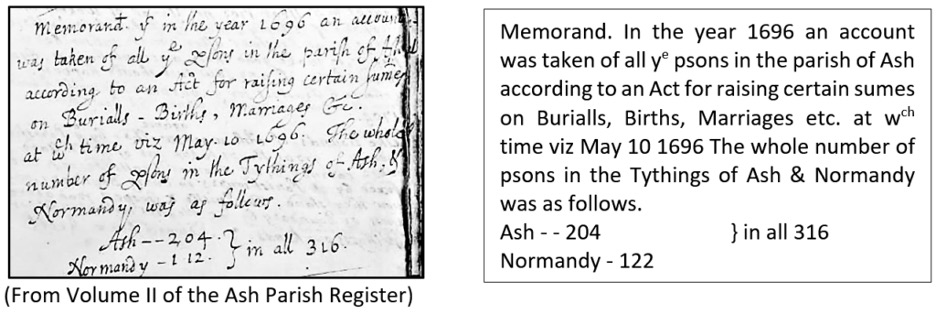 Memorand. yt in the year 1696 an accoun
was taken of all ye psons in the parish of Ash
according to an Act for raising certain sumes
on Burialls - Births, Marriages &c.
at wch time viz May. 10 1696. The whole
number of psons in the Tythings of Ash, &
Normandy, was as follows.
Ash -- 204. } in all 316.
Normandy - 112.
(From Volume II of the Ash Parish Register)
Memorand. In the year 1696 an account
was taken of all ye psons in the parish of Ash
according to an Act for raising certain sumes
on Burialls, Births, Marriages etc. at wch
time viz May 10 1696 The whole number of
psons in the Tythings of Ash & Normandy
was as follows.
Ash - - 204 } in all 316
Normandy - 122